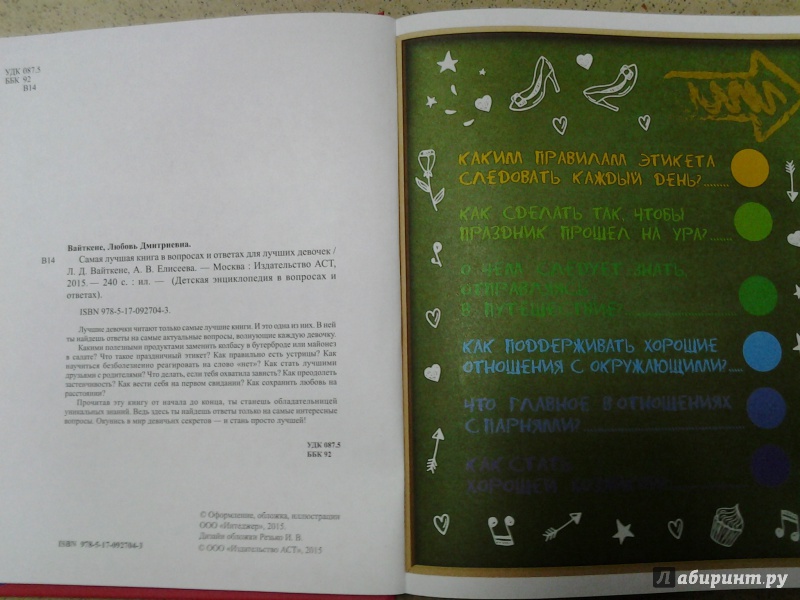 УДК 087.5
ББК 92
В14
Вайткене, Любовь Дмитриевна.
В14 Самая лучшая книга в вопросах и ответах для лучших девочек /
Л. Д. Вайткене, А. В. Елисеева. — Москва : Издательство АСТ,
2015. — 240 с. : ил. — (Детская энциклопедия в вопросах и
ответах).
ISBN 978-5-17-092704-3.
Лучшие девочки читают только самые лучшие книги. И это одна из них. В ней
ты найдешь ответы на самые актуальные вопросы, волнующие каждую девочку.
Какими полезными продуктами заменить колбасу в бутерброде или майонез
в салате? Что такое праздничный этикет? Как правильно есть устрицы? Как
научиться безболезненно реагировать на слово «нет»? Как стать лучшими
друзьями с родителями? Что делать, если тебя охватила зависть? Как преодолеть
застенчивость? Как вести себя на первом свидании? Как сохранить любовь на
расстоянии?
Прочитав эту книгу от начала до конца, ты станешь обладательницей
уникальных знаний. Ведь здесь ты найдешь ответы только на самые интересные
вопросы. Окунись в мир девичьих секретов — и стань просто лучшей!
УДК 087.5
ББК 92
© Оформление, обложка, иллюстрации
ООО «Интеджер», 2015.
Дизайн обложки Резько И. В.
ISBN 978-5-17-092704-3
© ООО «Издательство АСТ», 2015
КАКИМ ПРАВИЛАМ ЭТИКЕТА
СЛЕДОВАТЬ КАЖДЫЙ ДЕНЬ?
КАК СДЕЛАТЬ ТАК, ЧТОБЫ
ПРАЗДНИК ПРОШЕЛ НА УРА?
О ЧЕМ СЛЕДУЕТ ЗНАТЬ,
ОТПРАВЛЯЯСЬ
В ПУТЕШЕСТВИЕ?
КАК ПОДДЕРЖИВАТЬ ХОРОШИЕ
ОТНОШЕНИЯ С ОКРУЖАЮЩИМИ?
ЧТО ГЛАВНОЕ В ОТНОШЕНИЯХ
С ПАРНЯМИ?
КАК СТАТЬ
ХОРОШЕЙ ХОЗЯЙКОЙ?
Лабиринт.ру